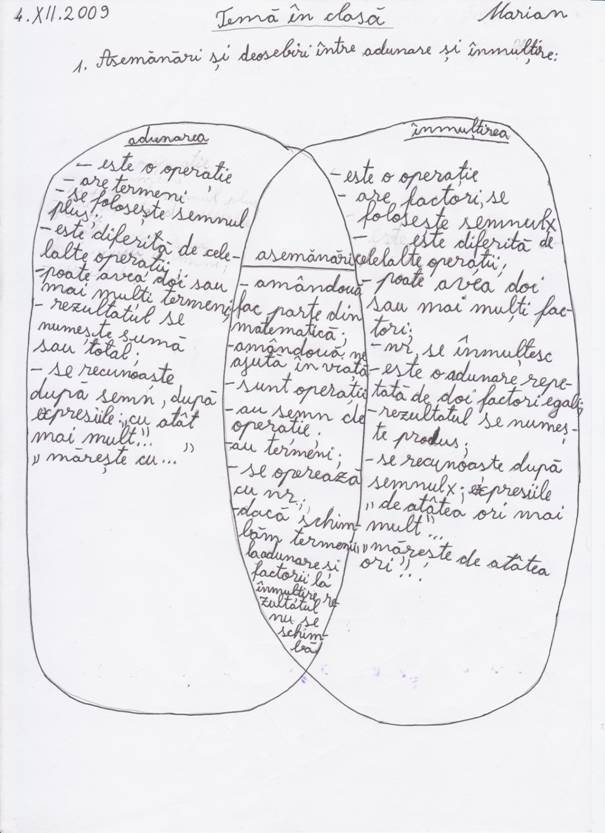 4.XII.2009 Temă în clasă Marian
1. Asemănări și deosebiri între adunare și înmulțire:
adunarea
- este o operație
- are termeni
- se folosește semnul
plus.
- este diferită de cele-
lalte operații;
- poate avea doi sau
mai mulți termeni;
- rezultatul se
numește sumă
sau total;
- se recunoaște
după semn, după
expresiile: „cu atât
mai mult..."
„mărește cu..."
asemănări
- amândouă
fac parte din
matematică;
- amândouă ne
ajută în viață
- sunt operații
- au semn de
operație;
- au termeni;
- se operează
cu nr.;
- dacă schim-
băm termenii
la adunare și
factorii la
înmulțire re-
zultatul
nu se
schim-
bă
înmulțirea
- este o operație
- are factori, se
folosește semnul x
- este diferită de
celelalte operații;
- poate avea doi
sau mai mulți fac-
tori;
- nr. se înmulțesc
- este o adunare repe-
tată de doi factori egali
- rezultatul se numeș-
te produs;
- se recunoaste după
semnul x; expresiile
„de atâtea ori mai
mult"...
„mărește de atâtea
ori"...